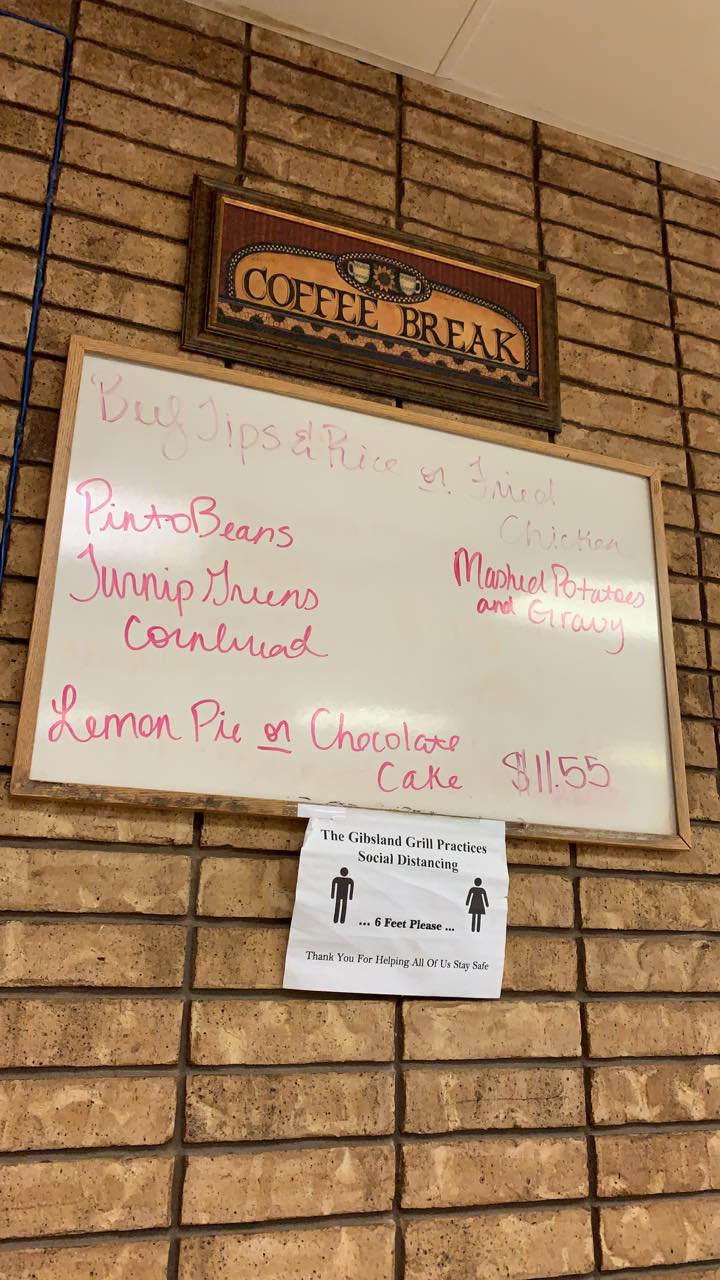 COFFEE BREAK
Beef Tips & Rice or Fried
Chicken
Pinto Beans
Mashed Potatoes
and Gravy
Turnip Greens
Cornbread
Lemon Pie or Chocolate
Cake
$11.55
The Gibsland Grill Practices
Social Distancing
... 6 Feet Please ...
Thank You For Helping All Of Us Stay Safe